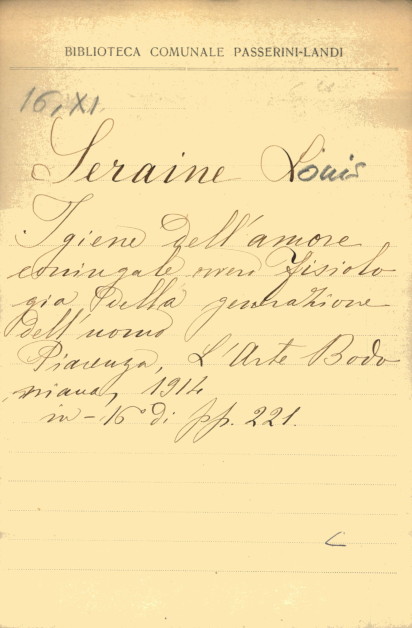 BIBLIOTECA COMUNALE PASSERINI-LANDI
16, XI
Seraine Louis
Igiene dell'amore
coniugale ovvero Fisiolo
gia della generazione
dell'uomo
Piacenza, L'Arte Bodo
niana, 1914
in-16° di pp. 221.